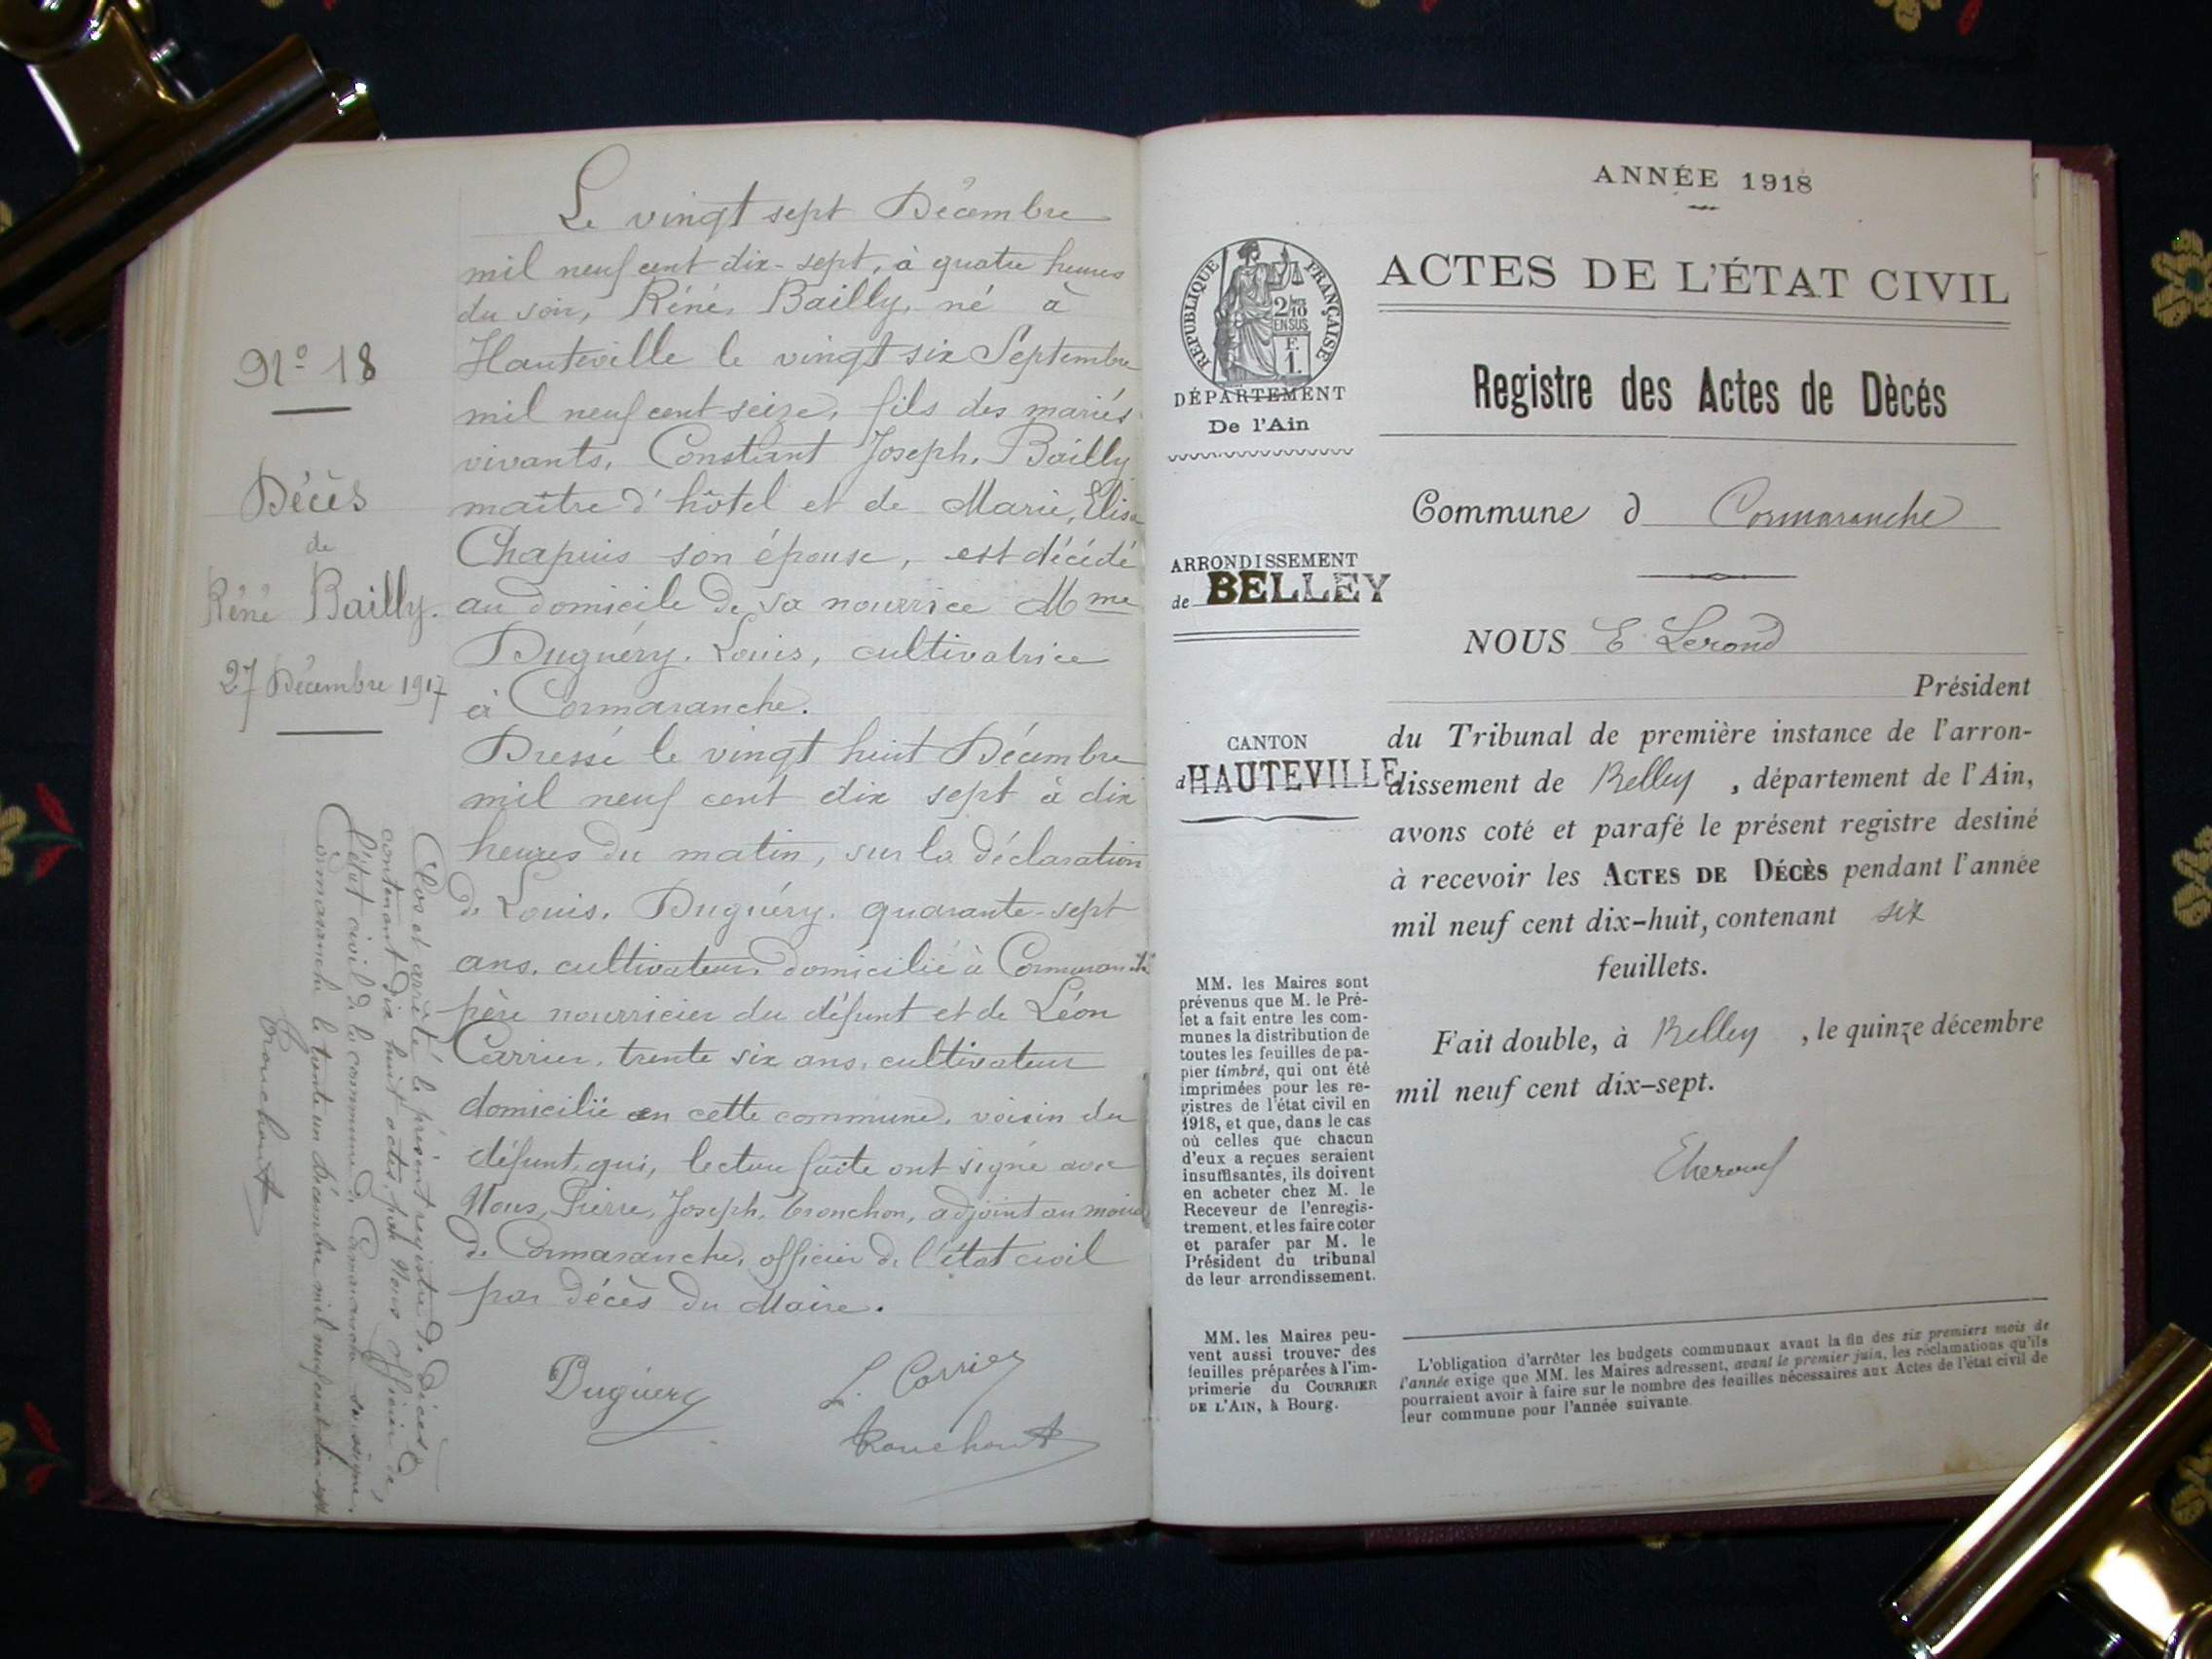 Le vingt sept Décembre
mil neuf cent dix-sept, à quatre heures
du soir, Réné, Bailly, né à
Hauteville le vingt six Septembre
mil neuf cent seize, fils des mariés
vivants, Constant Joseph, Bailly
maître d'hôtel et de Marie, Elisa
Chapuis son épouse, est décédé
au domicile de sa nourrice Mme
Duguéry, Louis, cultivatrice
à Cormaranche.
Dressé le vingt huit Décembre
mil neuf cent dix sept à dix
heures du matin, sur la déclaration
de Louis, Duguéry, quarante-sept
ans, cultivateur domicilié à Cormaranche
père nourricier du défunt et de Léon
Carrier, trente six ans, cultivateur
domicilié en cette commune, voisin du
défunt, qui, lecture faite ont signé avec
Nous, Pierre, Joseph, Tronchon, adjoint au maire
de Cormaranche, officier de l'état civil
par décès du Maire.
Duguery
L. Carrier
N° 18
Décès
de
Réné Bailly.
27 Décembre 1917
Clos et arrêté le présent registre de Décès
contenant dix huit actes, par Nous officier de
l'état civil de la commune de Cormaranche soussigné.
Cormaranche le trente un décembre mil neuf cent dix-sept
ANNÉE 1918
RÉPUBLIQUE FRANÇAISE
2/10
EN SUS
F.
1.
DÉPARTEMENT
De l'Ain
ACTES DE L'ÉTAT CIVIL
Registre des Actes de Dècés
Commune d Cormaranche
ARRONDISSEMENT
de BELLEY
NOUS E Lerond
Président
CANTON
d'HAUTEVILLE
du Tribunal de première instance de l'arron-
dissement de Belley, département de l'Ain,
avons coté et parafé le présent registre destiné
à recevoir les ACTES DE DÉCÈS pendant l'année
mil neuf cent dix-huit, contenant six
feuillets.
Fait double, à Belley, le quinze décembre
mil neuf cent dix-sept.
MM. les Maires sont
prévenus que M. le Pré-
fet a fait entre les com-
munes la distribution de
toutes les feuilles de pa-
pier timbré, qui ont été
imprimées pour les re-
gistres de l'état civil en
1918, et que, dans le cas
où celles que chacun
d'eux a reçues seraient
insuffisantes, ils doivent
en acheter chez M. le
Receveur de l'enregis-
trement, et les faire coter
et parafer par M. le
Président du tribunal
de leur arrondissement.
MM. les Maires peu-
vent aussi trouver des
feuilles préparées à l'im-
primerie du COURRIER
DE L'AIN, à Bourg.
L'obligation d'arrêter les budgets communaux avant la fin des six premiers mois de
l'année exige que MM. les Maires adressent, avant le premier juin, les réclamations qu'ils
pourraient avoir à faire sur le nombre des feuilles nécessaires aux Actes de l'état civil de
leur commune pour l'année suivante.